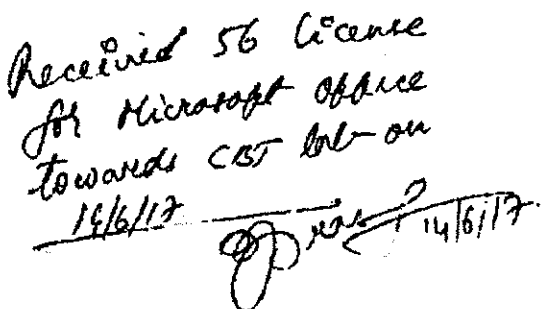 Received 56 license
for Microsoft office
towards CBT lab on
14/6/17
14/6/17